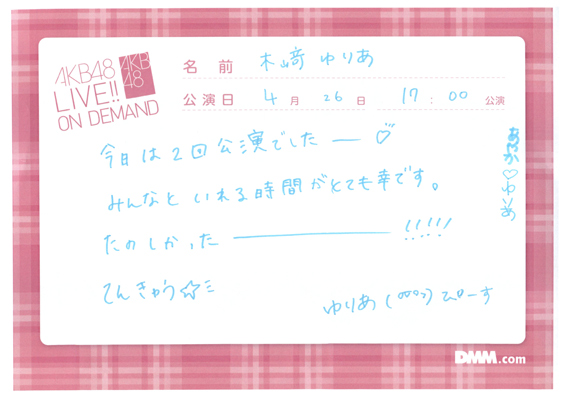 AKB48
LIVE!!
ON DEMAND
AKB
48
名前 木﨑ゆりあ
公演日 4月26日 17:00公演
今日は2回公演でした ー ♡
みんなといれる時間がとても幸です。
たのしかった ー !!!!!
てんきゅう☆ミ
ゆりあ ( ) ぴーす
♡ゆりあ
DMM.com